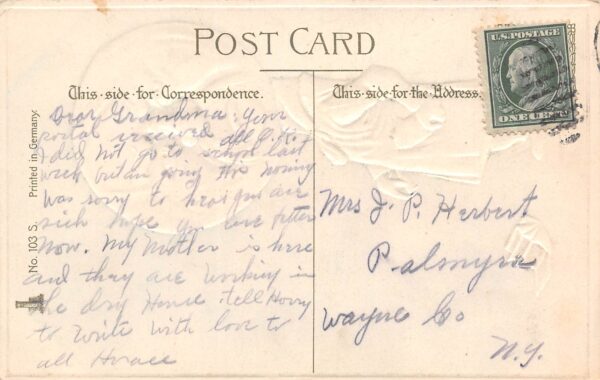 POST CARD
This · side · for · Correspondence.
This · side · for · the · Address.
U.S. POSTAGE
ONE CENT
Printed in Germany.
No. 103 S.
Dear Grandma: Your
postal received all O.K.
I did not go to school last
week but am going this morning
was sorry to hear you are
sick hope you are better
now. My Mother is here
and they are working in
the dry House. tell Harry
to write with love to
all Horace
Mrs J. P. Herbert
Palmyra
Wayne Co
N.Y.